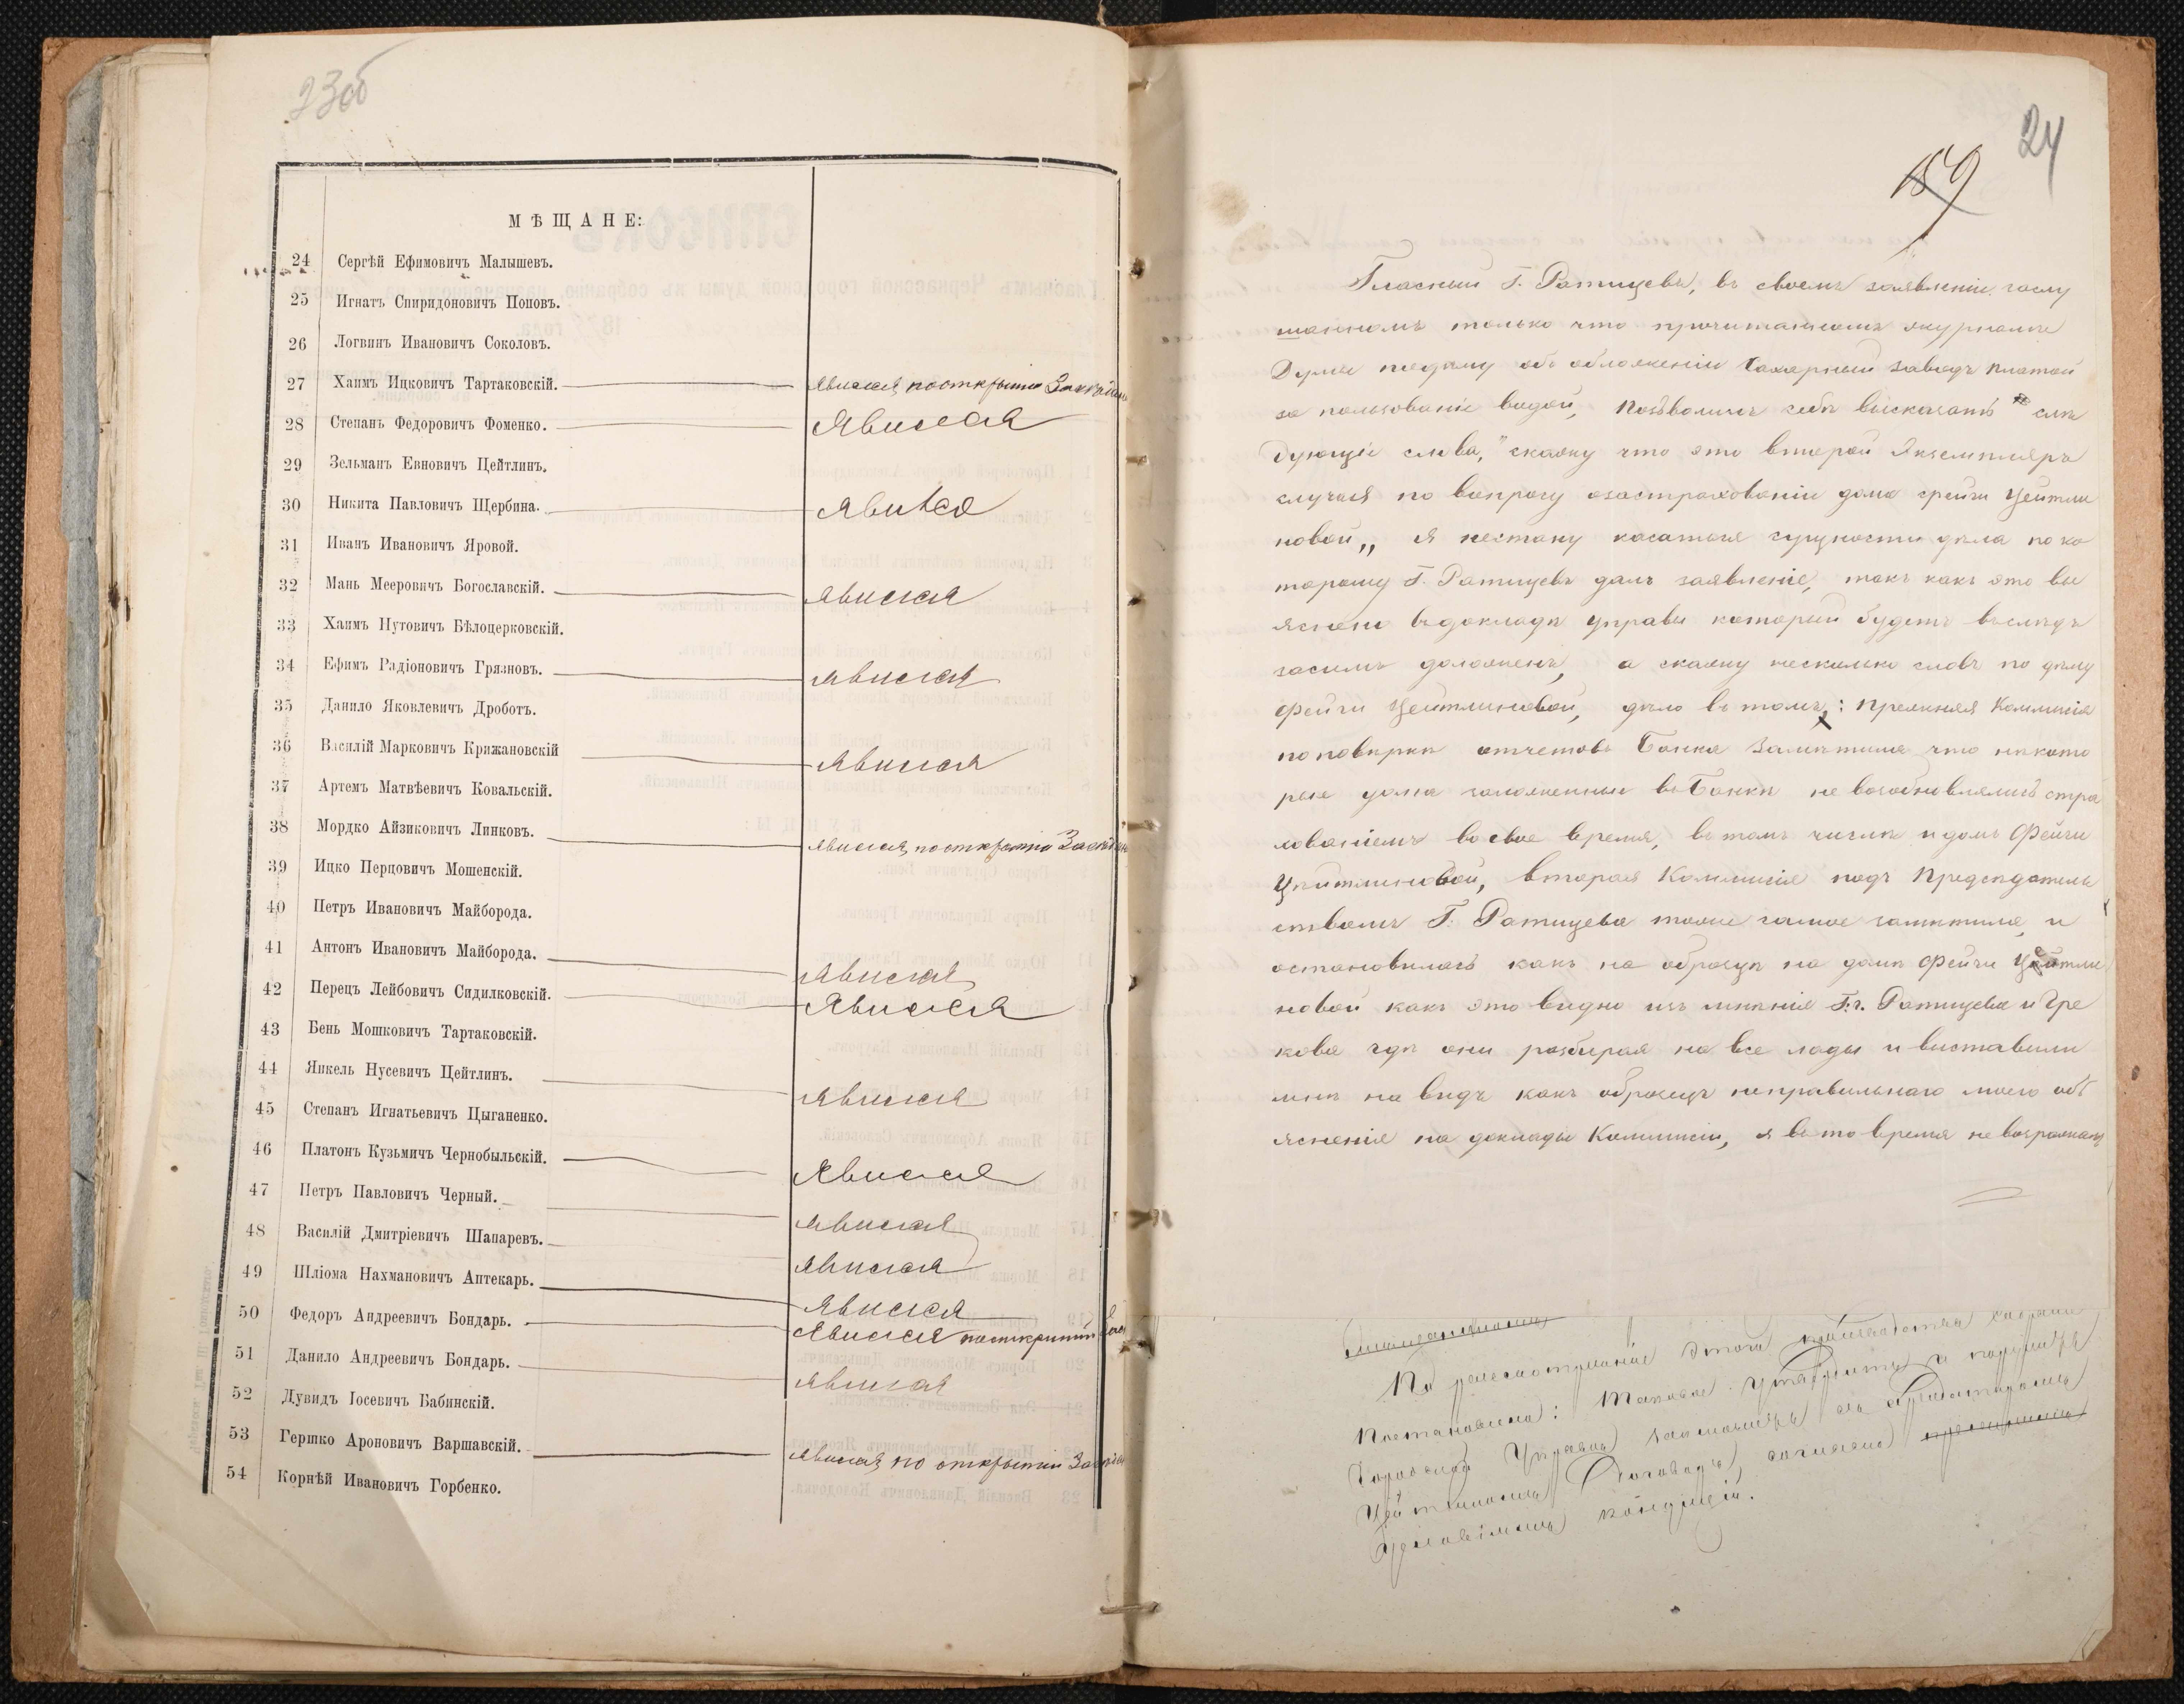 23об
МѢЩАНЕ:
24 Сергѣй Ефимовичъ Малышевъ.
25 Игнатъ Спиридоновичъ Поповъ.
26 Логвинъ Ивановичъ Соколовъ.
27 Хаимъ Ицковичъ Тартаковскій. явился, пооткрытіи
28 Степанъ Федоровичъ Фоменко. Явился
29 Зельманъ Евновичъ Цейтлинъ.
30 Никита Павловичъ Щербина. явился
31 Иванъ Ивановичъ Яровой.
32 Мань Мееровичъ Богославскій. явился
33 Хаимъ Нутовичъ Бѣлоцерковскій.
34 Ефимъ Радіоновичъ Грязновъ. явился
35 Данило Яковлевичъ Дроботъ.
36 Василій Марковичъ Крижановскій явился
37 Артемъ Матвѣевичъ Ковальскій.
38 Мордко Айзиковичъ Линковъ. явился, пооткрытіи
39 Ицко Перцовичъ Мошенскій.
40 Петръ Ивановичъ Майборода.
41 Антонъ Ивановичъ Майборода. явился
42 Перецъ Лейбовичъ Сидилковскій. Явился
43 Бень Мошковичъ Тартаковскій.
44 Янкель Нусевичъ Цейтлинъ. явился
45 Степанъ Игнатьевичъ Цыганенко.
46 Платонъ Кузьмичъ Чернобыльскій. Явился
47 Петръ Павловичъ Черный. явился
48 Василій Дмитріевичъ Шапаревъ. явился
49 Шліома Нахмановичъ Аптекарь. явился
50 Федоръ Андреевичъ Бондарь. Явился пооткрытий
51 Данило Андреевичъ Бондарь. явился
52 Дувидъ Іосевичъ Бабинскій.
53 Гершко Ароновичъ Варшавскій. явился, по открытіи
54 Корнѣй Ивановичъ Горбенко.
24
159
Гласный Г. Ратищевъ, въ своемъ заявленіи заслу
шанномъ только что прочитанномъ журналѣ
Думы поданну объ обложеніи Сахарный заводъ платой
за пользованіе водой, позволилъ себѣ высказать слѣ
дующіе слова, "скажу что это второй Экземпляръ
случая по вопросу озастрахованіи дома Фейги Цейтли
новой„ я нестану касаться сущности дѣла по ко
торому Г. Ратищевъ далъ заявленіе, такъ какъ это вы
яснено въдокладѣ Управы который будетъ вслѣдъ
засимъ доложенъ, а скажу несколько словъ по дѣлу
Фейги Цейтлиновой, дѣло въ томъ: прежняя Коммисія
поповѣрки отчетовъ Банка замѣтила что нѣкото
рые дома заложенные въБанкѣ не возобновлялись стра
хованіемъ восвое время, въ томъ числѣ идомъ Фейги
Цейтлиновой, вторая Коммисія подъ Предсѣдатель
ствомъ Г. Ратищева тоже самое замѣтила, и
остановилась какъ на образцѣ на домѣ Фейги Цейтли
новой какъ это видно изъ мнѣнія Г.г. Ратищева и Гре
кова гдѣ они разбирая на все лады и выставили
мнѣ на видъ какъ образецъ неправильнаго моего объ
ясненія на доклады Коммисіи, я вото время невозражалъ
По разсмотреніи этого
Постановила: таковое утвердить и поручить
Городской Управѣ заключить съ Арендаторомъ
Цейтлиномъ Договоръ, согласно
кондицій.